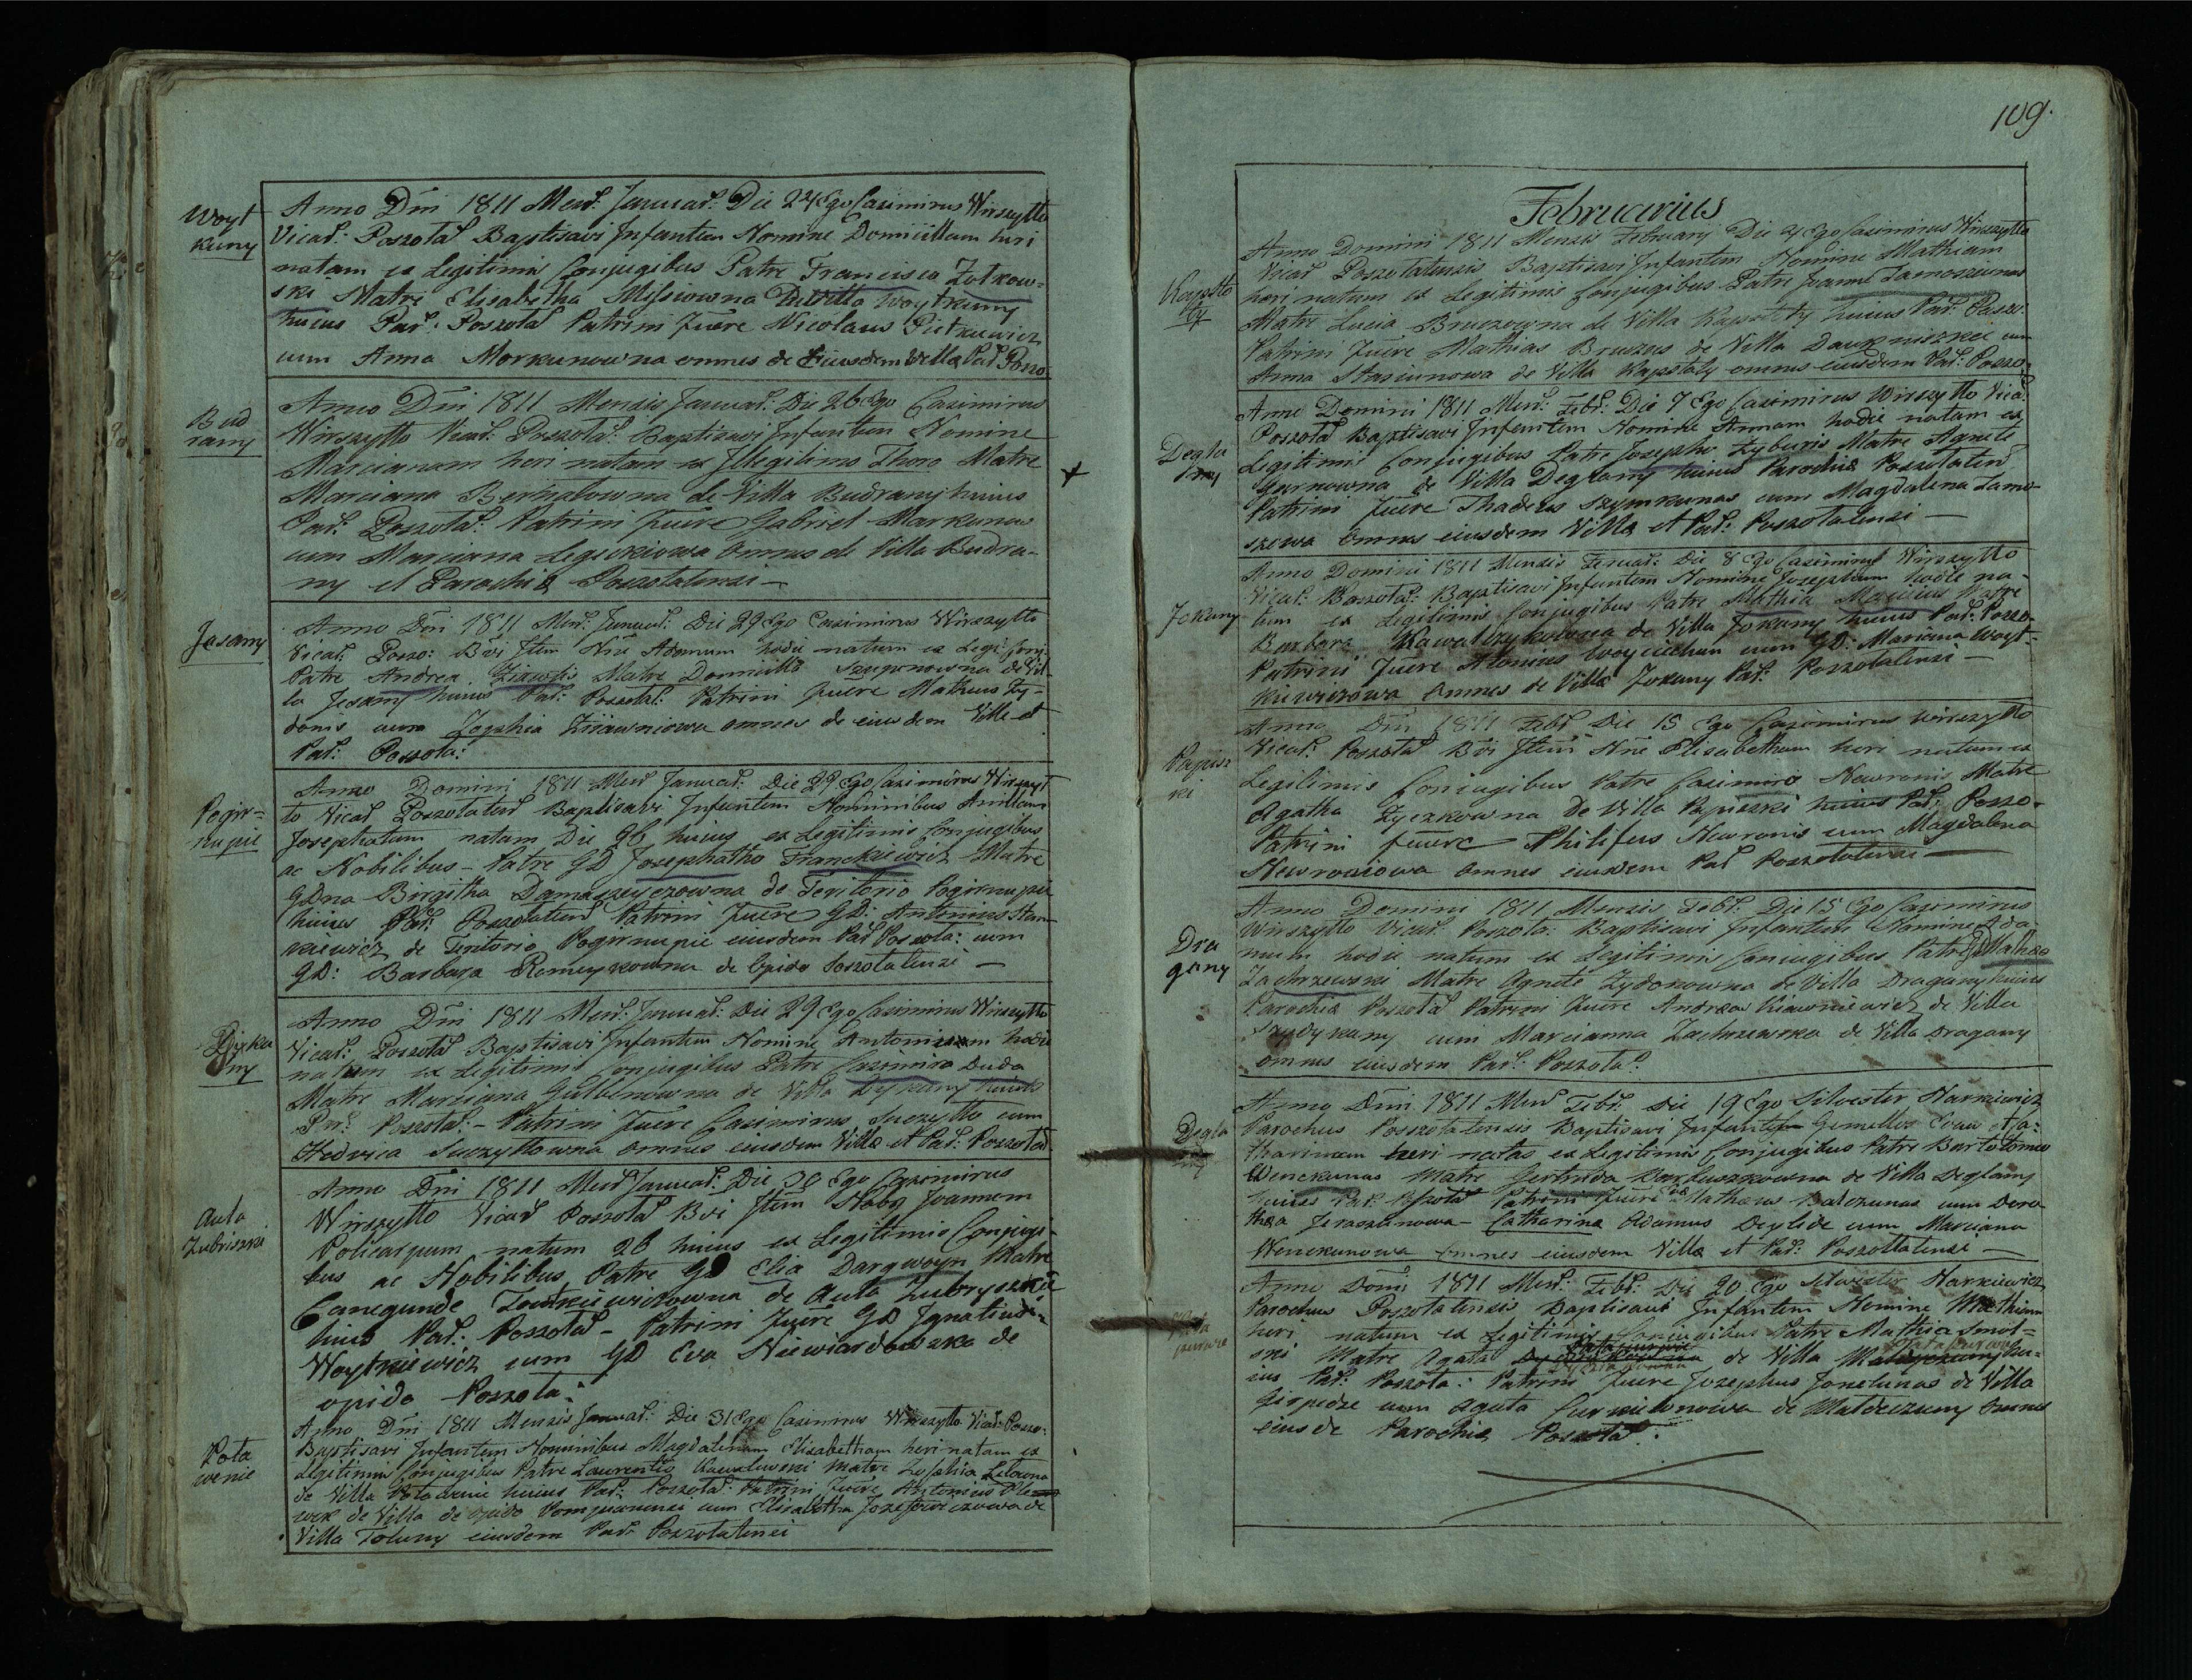 Woyt
kuny
Anno Dni 1811 Mens: Januar: Die 24 Ego Casimirus Wirszyłło
Vicar: Poszolat Baptisavi Infantem Nomine Domicillam heri
natam ex Legitimis Conjugibus Patre Francisco Zołkow=
ski Matre Elisabetha Missiowna De Villa Woytkuny
huius Par: Poszolat Patrini fuere Nicolaus Pietkiewicz
cum Anna Morkunowna omnes de Eiusdem Villa Par Poszo
Bud
rany
Anno Dni 1811 Mensis Januar: Die 26 Ego Casimirus
Wirszyłło Vicar: Poszolat: Baptisavi Infantem Nomine
Marcianam heri natam ex Illegitimo Thoro Matre
Marciana Bernatowna de Villa Budrany huius
Par: Poszolat: Patrini fuere Gabriel Markunas
cum Marciana omnes de Villa Budra-
ny et Parochia Poszolatensi
Jasany
Anno Dni 1811 Mens: Januar: Die 29 Ego Casimirus Wirszyłło
Vicar: Poszo: Bvi Iftem Nne Adamum hodie natum ex Legi: Conj:
Patre Andrea Matre Domicilla de Vil-
la Jesany huius Par: Poszolat: Patrini fuere Matheus Zy-
donis cum Zophia omnes de eiusdem Villa et
Par: Poszola:
Pogir=
nupie
Anno Domini 1811 Mens Januar: Die 29 Ego Casimirus Wirszył
ło Vicar Poszolatens Baptisavi Infantem Nominibus
Josephatum natam Die 26 huius ex Legitimis Conjugibus
ac Nobilibus - Patre GD Josephatho Franckiewicz Matre
GDna Birgitha Damaszewiczowna de Teritorio Pogirnupie
huius Par: Poszolatens Patrini fuere GD: Antonius Stan
kiewicz de Teritorio Pogirnupie eiusdem Par Poszola: cum
GD: Barbara Romeykowna de Opido Poszolatensi
Dirka
ny
Anno Dni 1811 Mens: Januar: Die 29 Ego Casimirus Wirszyłło
Vicar: Poszolat Baptisavi Infantem Nomine hodie
natum ex Legitimis Conjugibus Patre Casimiro Duda
Matre Marciana Gulbinowna de Villa Dyrkany huius
Par: Poszolat: - Patrini fuere Casimirus Suszyłło cum
Hedvica Suszyłłowna omnes eiusdem Villa et Par: Poszolat
Aula
Zubriszki
Anno Dni 1811 Mens Januar: Die 30 Ego Casimirus
Wirszyłło Vicar Poszolat Bvi Iftem Nobs Joannem
Policarpum natum 26 huius ex Legitimis Conjugi-
bus ac Nobilibus Patre GD Elia Dargwoyn Matre
Canegunde de Aula Zubryszki
huius Par: Poszolat - Patrini fuere GD Ignatius
Woytkiewicz cum GD Eva de
opido Poszola:
Pota
wenie
Anno Dni 1811 Mensis Januar: Die 31 Ego Casimirus Wirszyłło Vicar: Poszo:
Baptisavi Infantem Nominibus Magdalenam Elisabetham heri natam ex
Legitimis Conjugibus Patre Laurentio Kawalewski Matre Zophia
de Villa Potawenie huius Par: Poszolat: Patrini fuere Antonius
de Villa de opido cum Elisabetha Jozefowiczowa de
Villa Toluny eiusdem Par: Poszolatensi
109.
Februarius
Kapsto
ty
Anno Domini 1811 Mensis February Die Ego Casimirus Wirszyłło
Vicar Poszolatensis Baptisavi Infantem Nomine Mathiam
heri natum ex Legitimis Conjugibus Patre Joanne Jamoszunas
Matre Lucia Bruzowna de Villa Kapstaty huius Par: Poszo:
Patrini fuere Mathias Bruzas de Villa cum
Anna Stasiunowa de Villa Kapstaty omnes eiusdem Par: Poszo:
Degla
ny
Anno Domini 1811 Mens: Febr: Die 7 Ego Casimirus Wirszyłło Vica:
Poszolat Baptisavi Infantem Nomine Annam hodie natam ex
Legitimis Conjugibus Patre Josepho Zyburis Matre Agnete
Gurnowna de Villa Deglany huius Parochia Poszolaten
Patrini fuere Thadeus Szymkunas cum Magdalena Jamo-
szowa omnes eiusdem Villa et Par: Poszolatensi
Jokany
Anno Domini 1811 Mensis Februar: Die 8 Ego Casimirus Wirszyłło
Vicar: Poszolat: Baptisavi Infantem Nomine Josephum hodie na-
tum ex Legitimis Conjugibus Patre Mathia Matre
Barbara de Villa Jokany huius Par: Poszo-
Patrini fuere Woyciechun cum GD: Mariana Woyt-
kiewiczowa omnes de Villa Jokany Par: Poszolatensi
Papisz
ki
Anno Dni 1811 Febr Die 15 Ego Casimirus Wirszyłło
Vicar: Poszolat Bvi Iftem Nne Elisabetham heri natam ex
Legitimis Conjugibus Patre Casimiro Nawronis Matre
Agatha Zyczkowna De Villa Papiszki huius Par: Poszo-
Patrini fuere Philipus Nawronis cum Magdalena
Nawroniowa omnes eiusdem Par Poszolatensi
Dra
gany
Anno Domini 1811 Mensis Febr: Die 15 Ego Casimirus
Wirszyłło Vicar: Poszola: Baptisavi Infantem Nomine Ada-
mum hodie natum ex Legitimis Conjugibus Patre GD Mathia
Zachrzewski Matre Agnete Zydonowna de Villa Dragany huius
Parochia Poszolat Patrini fuere Andreas de Villa
cum Marcianna Zachrzewska de Villa Dragany
omnes eiusdem Par: Poszola:
Degla
ny
Anno Dni 1811 Mens Febr: Die 19 Ego Silvester Narkiewicz
Parochus Poszolatensis Baptisavi Infantes Gemellos Evam et Ca:
tharinam heri natas ex Legitimis Conjugibus Patre Bartolomeo
Wenckunas Matre Gertruda de Villa Deglany
huius Par: Poszolat Patrini fuere Mathaeus Balczunas cum Doro
thea - Catharina Adamus cum Marciana
Wenckunowa omnes eiusdem Villa et Par: Poszollatensi
Anno Domi 1811 Mens: Febr: Die 20 Ego Silvester Narkiewicz
Parochus Poszolatensis Baptisavi Infantem Nomine Mathiam
heri natum ex Legitimis Conjugibus Patre Mathia Smol=
ski Matre Agata de Villa hu-
ius Par: Poszola: Patrini fuere Josephus Jonelunas de Villa
cum Agata de omnes
eiusde Parochia Poszolat: